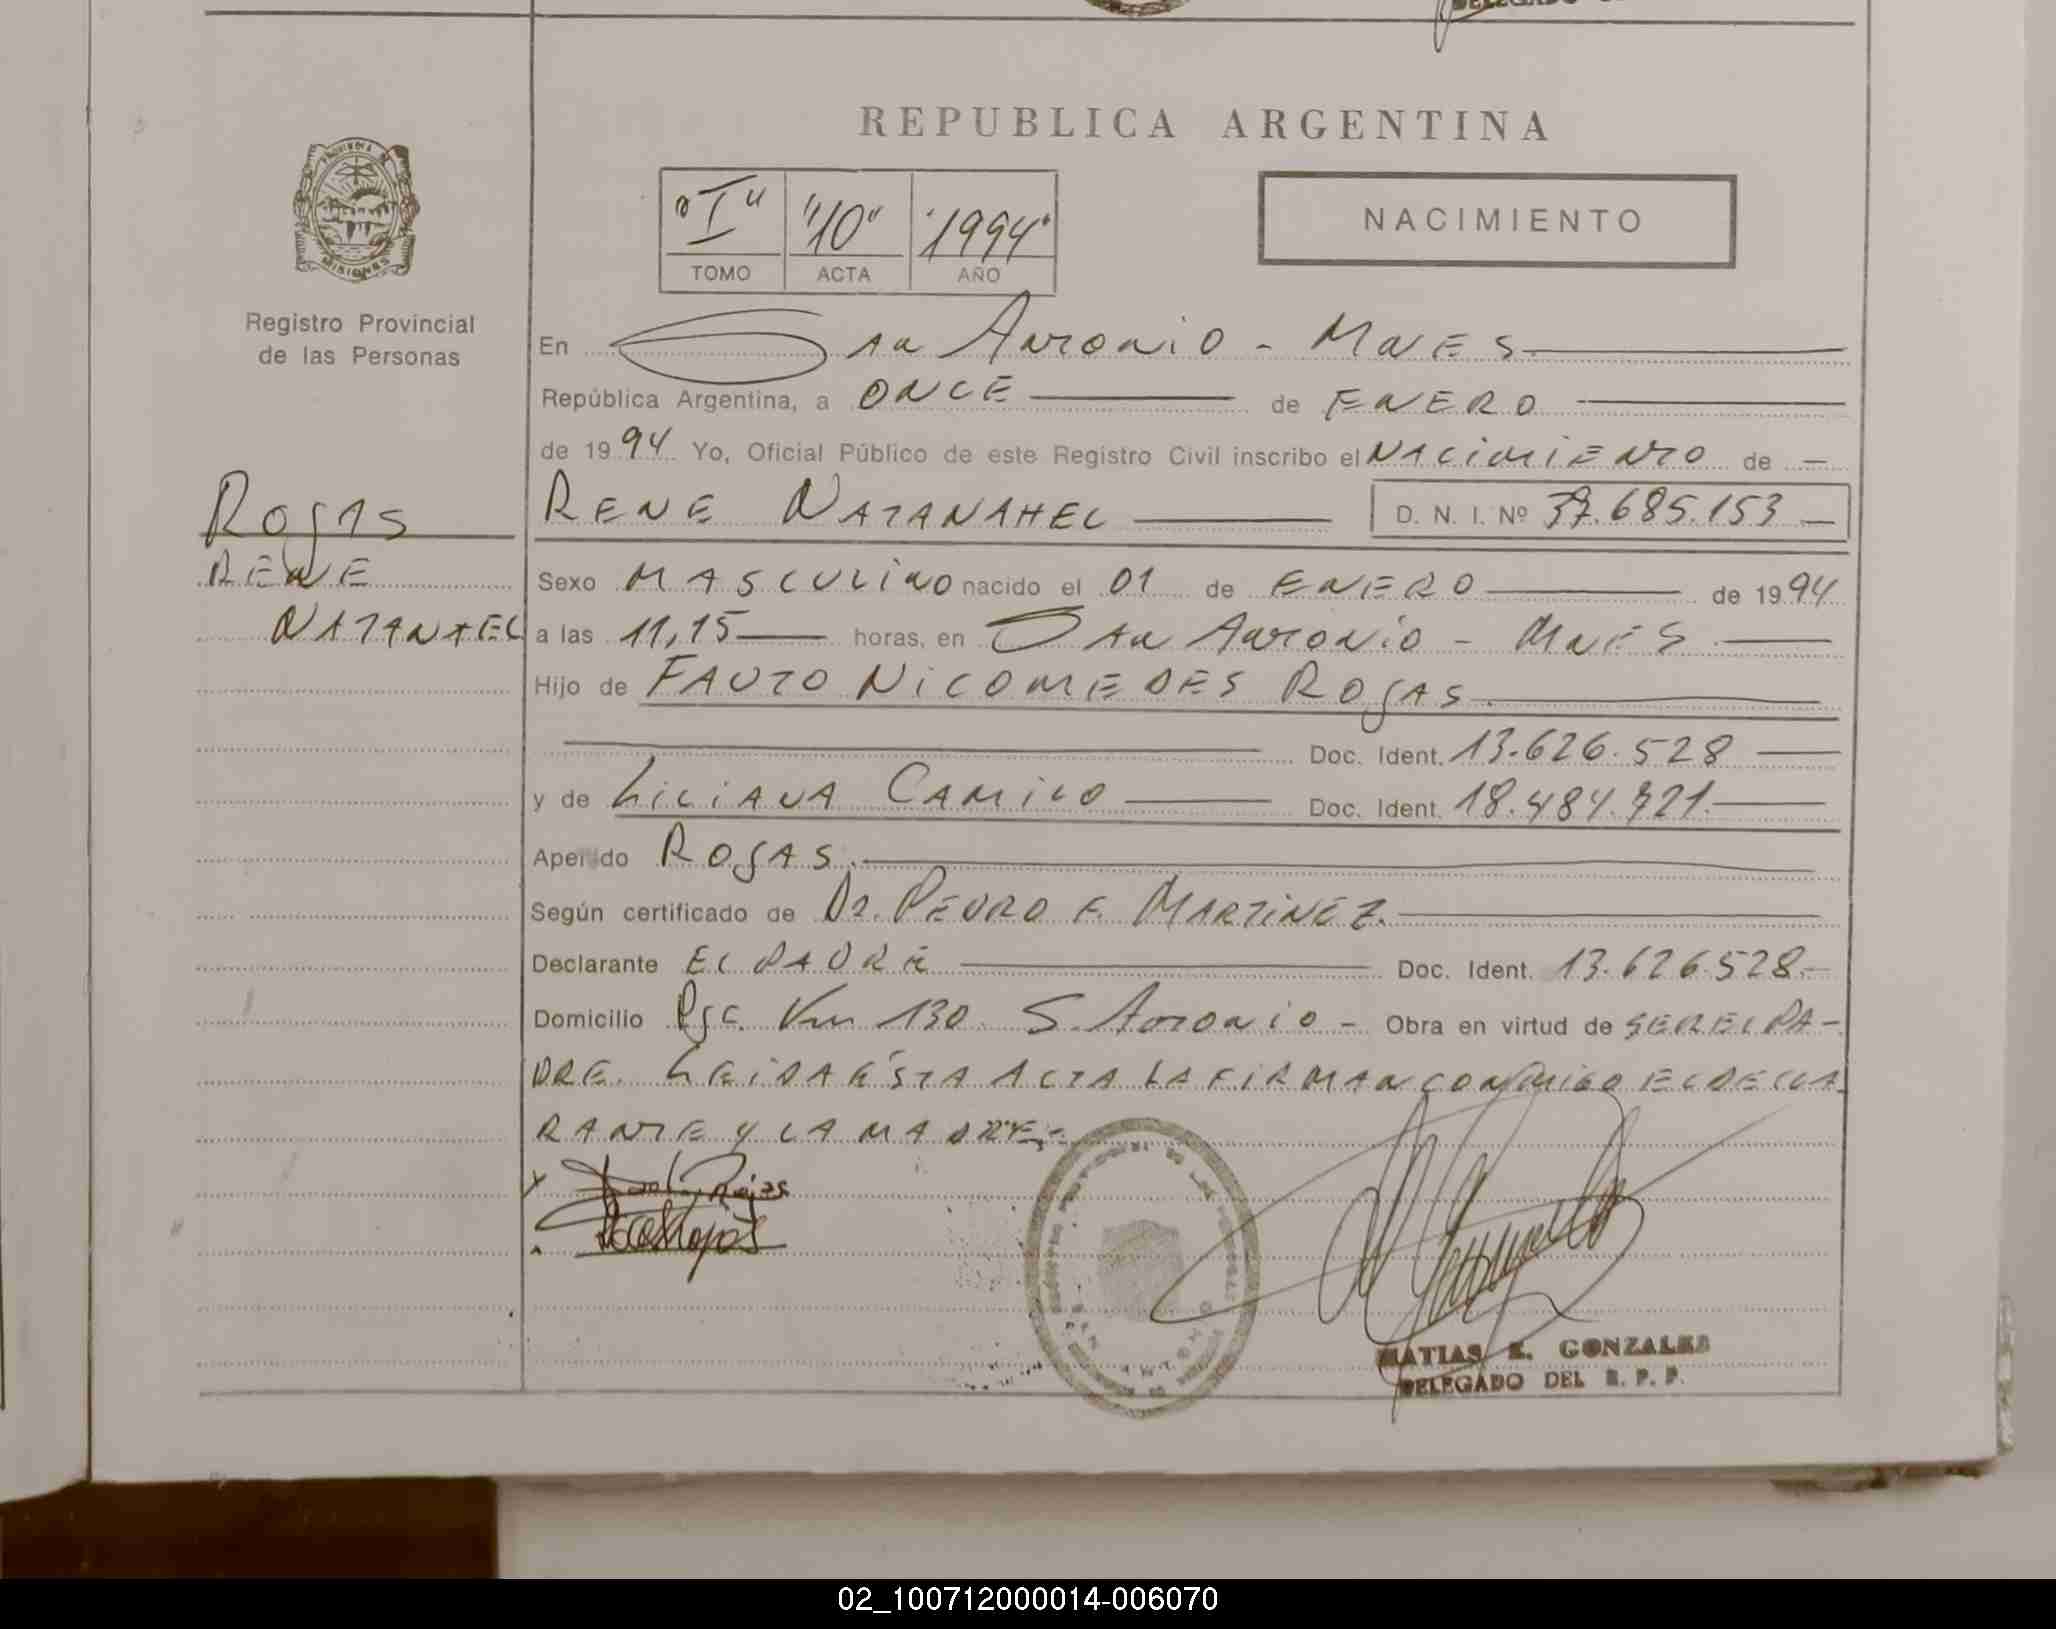 REPUBLICA ARGENTINA
PROVINCIA DE MISIONES
"I" "10" "1994"
TOMO ACTA AÑO
NACIMIENTO
Registro Provincial
de las Personas
En San Antonio - Mnes
República Argentina, a ONCE de ENERO
de 1994 Yo, Oficial Público de este Registro Civil inscribo el NACIMIENTO de
Rojas
RENE
NATANAEL
RENE NATANAHEL D. N. I. Nº 37.685.153
Sexo MASCULINO nacido el 01 de ENERO de 1994
a las 11,15 horas, en San Antonio - Mnes
Hijo de FAUTO NICOMEDES ROJAS.
Doc. Ident. 13.626.528
y de LILIANA CAMILO Doc. Ident. 18.484.721.
Apellido ROJAS.
Según certificado de Dr. PEDRO F. MARTINEZ.
Declarante EL PADRE Doc. Ident. 13.626.528.-
Domicilio Pje. Km 130. S. Antonio - Obra en virtud de SER EL PA-
DRE. LEIDA ESTA ACTA LA FIRMAN CONMIGO EL DECLA
RANTE Y LA MADRE.-
Rojas
MATIAS E. GONZALES
DELEGADO DEL R. P. P.
02_100712000014-006070